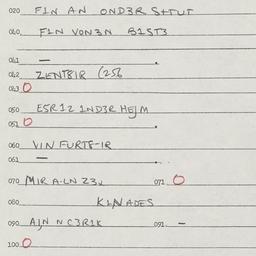 020 FIN AN OND3R S++TUT
040 FIN VON3N B1ST3
041 —
042 ZIENT8IR (256
043 O
050 ESR12 IND3R HEJM
051 O
060 VIN FURT8-IR
061 —
070 MIR A-LN Z3V 071 O
080 KLNADES
090 AJN N C3R1K 091 -
100 O